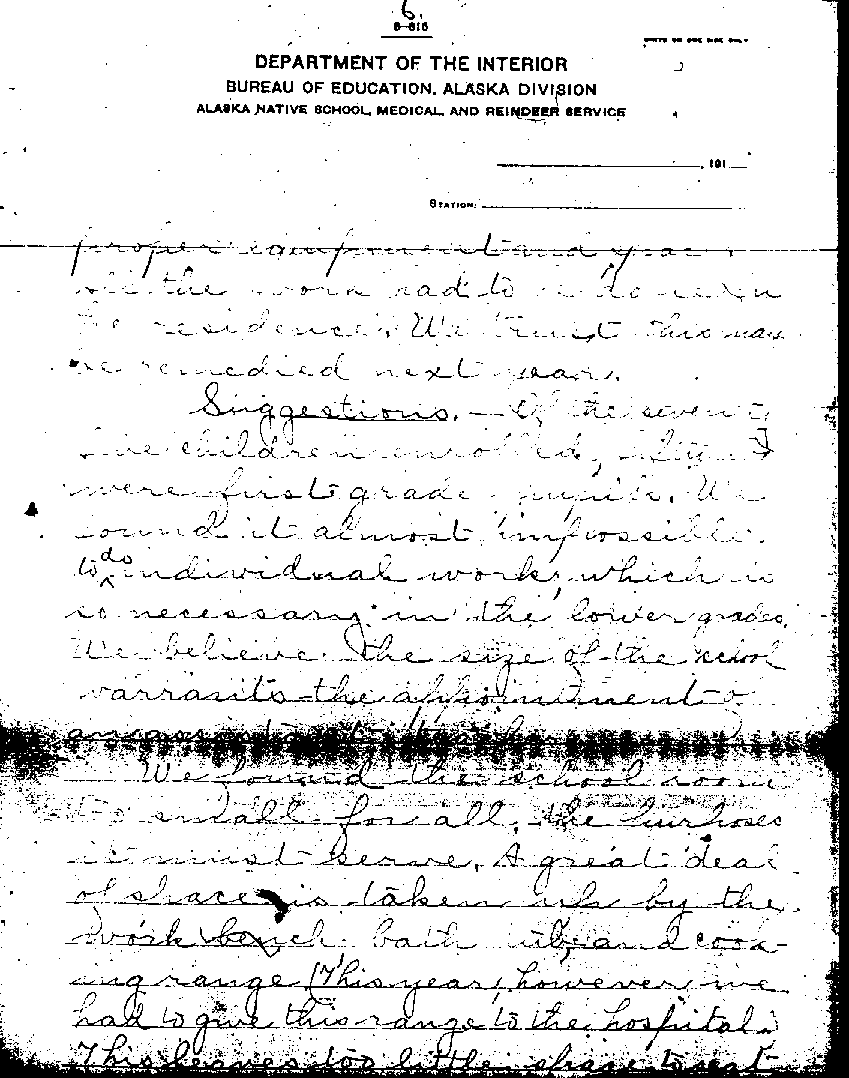 6.
6-616
DEPARTMENT OF THE INTERIOR
BUREAU OF EDUCATION, ALASKA DIVISION
ALASKA NATIVE SCHOOL, MEDICAL, AND REINDEER SERVICE
, 191
STATION:
proper equipment and
all the work had to be done in
the residence. We trust this may
be remedied next year.
Suggestions. — Of the seventy
five children enrolled,
were first grade pupils. We
found it almost impossible
to do individual work, which is
so necessary in the lower grades.
We believe the size of the school
warrants the appointment of
an assistant teacher.
We found the school room
too small for all the purposes
it must serve. A great deal
of space is taken up by the
work bench, bath tub, and cook-
ing range (This year, however, we
had to give this range to the hospital.
This leaves too little space to seat